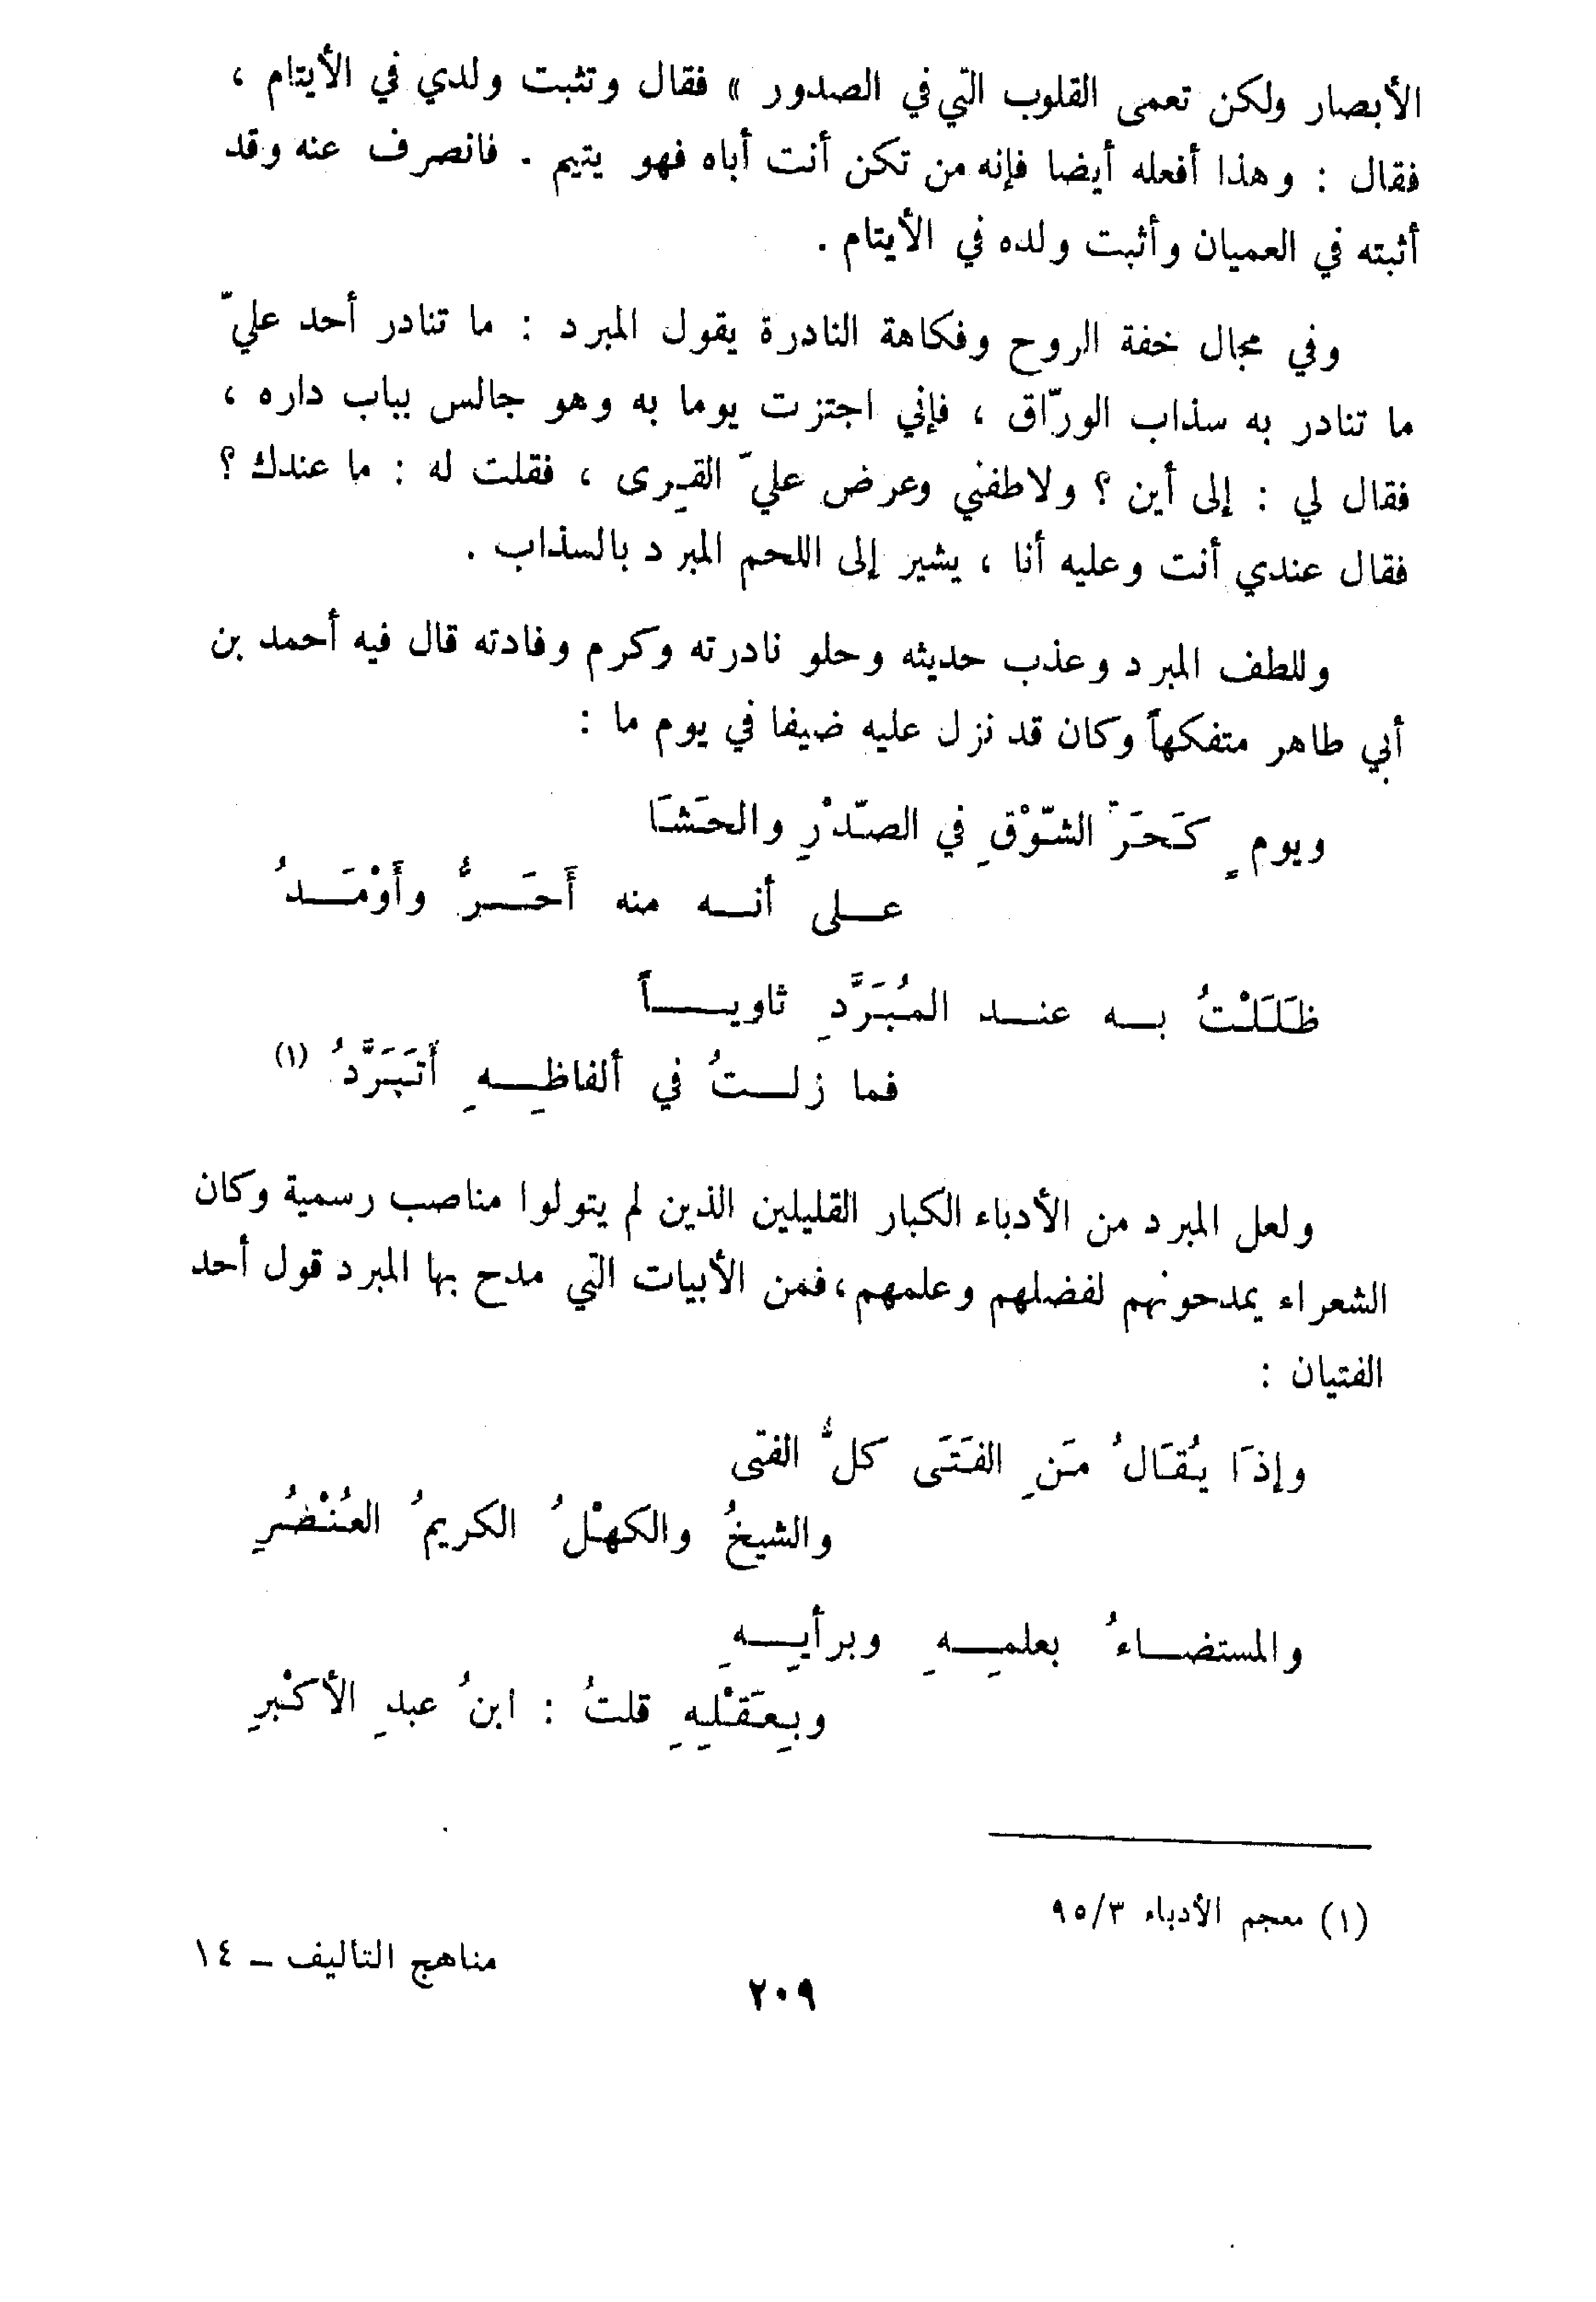 الأبصار ولكن تعمى القلوب التي في الصدور » فقال وتثبت ولدي في الأيتام ،
فقال : وهذا أفعله أيضا فإنه من تكن أنت أباه فهو يتيم . فانصرف عنه وقد
أثبته في العميان وأثبت ولده في الأيتام .
وفي مجال خفة الروح وفكاهة النادرة يقول المبرد : ما تنادر أحد عليّ
ما تنادر به سذاب الورّاق ، فإني اجتزت يوما به وهو جالس بباب داره ،
فقال لي : إلى أين ؟ ولاطفني وعرض عليّ القِرى ، فقلت له : ما عندك ؟
فقال عندي أنت وعليه أنا ، يشير إلى اللحم المبرد بالسذاب .
وللطف المبرد وعذب حديثه وحلو نادرته وكرم وفادته قال فيه أحمد بن
أبي طاهر متفكهاً وكان قد نزل عليه ضيفا في يوم ما :
ويومٍ كَحَرّ الشّوْقِ في الصّدْرِ والحَشَا
عـلى أنـه منه أَحَـرُّ وأَوْمَـدُ
ظَلَلْتُ بـه عنـد المُبَرَّدِ ثاويـاً
فما زلـتُ في ألفاظِـهِ أَتَبَرَّدُ (١)
ولعل المبرد من الأدباء الكبار القليلين الذين لم يتولوا مناصب رسمية وكان
الشعراء يمدحونهم لفضلهم وعلمهم ، فمن الأبيات التي مدح بها المبرد قول أحد
الفتيان :
وإذَا يُقَالُ مَنِ الفَتَى كلُّ الفتى
والشيخُ والكهْلُ الكريمُ العُنْصُرِ
والمستضـاءُ بعلمِـهِ وبرأيِـهِ
وبِعَقْلِهِ قلتُ : ابنُ عبدِ الأكْبرِ
(١) معجم الأدباء ٩٥/٣
مناهج التاليف – ١٤
٢٠٩